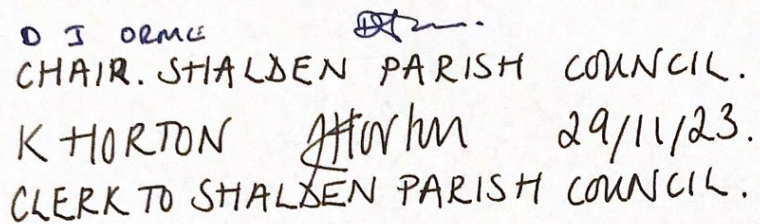 D J ORME
CHAIR. SHALDEN PARISH COUNCIL.
K HORTON KHorton 29/11/23.
CLERK TO SHALDEN PARISH COUNCIL.